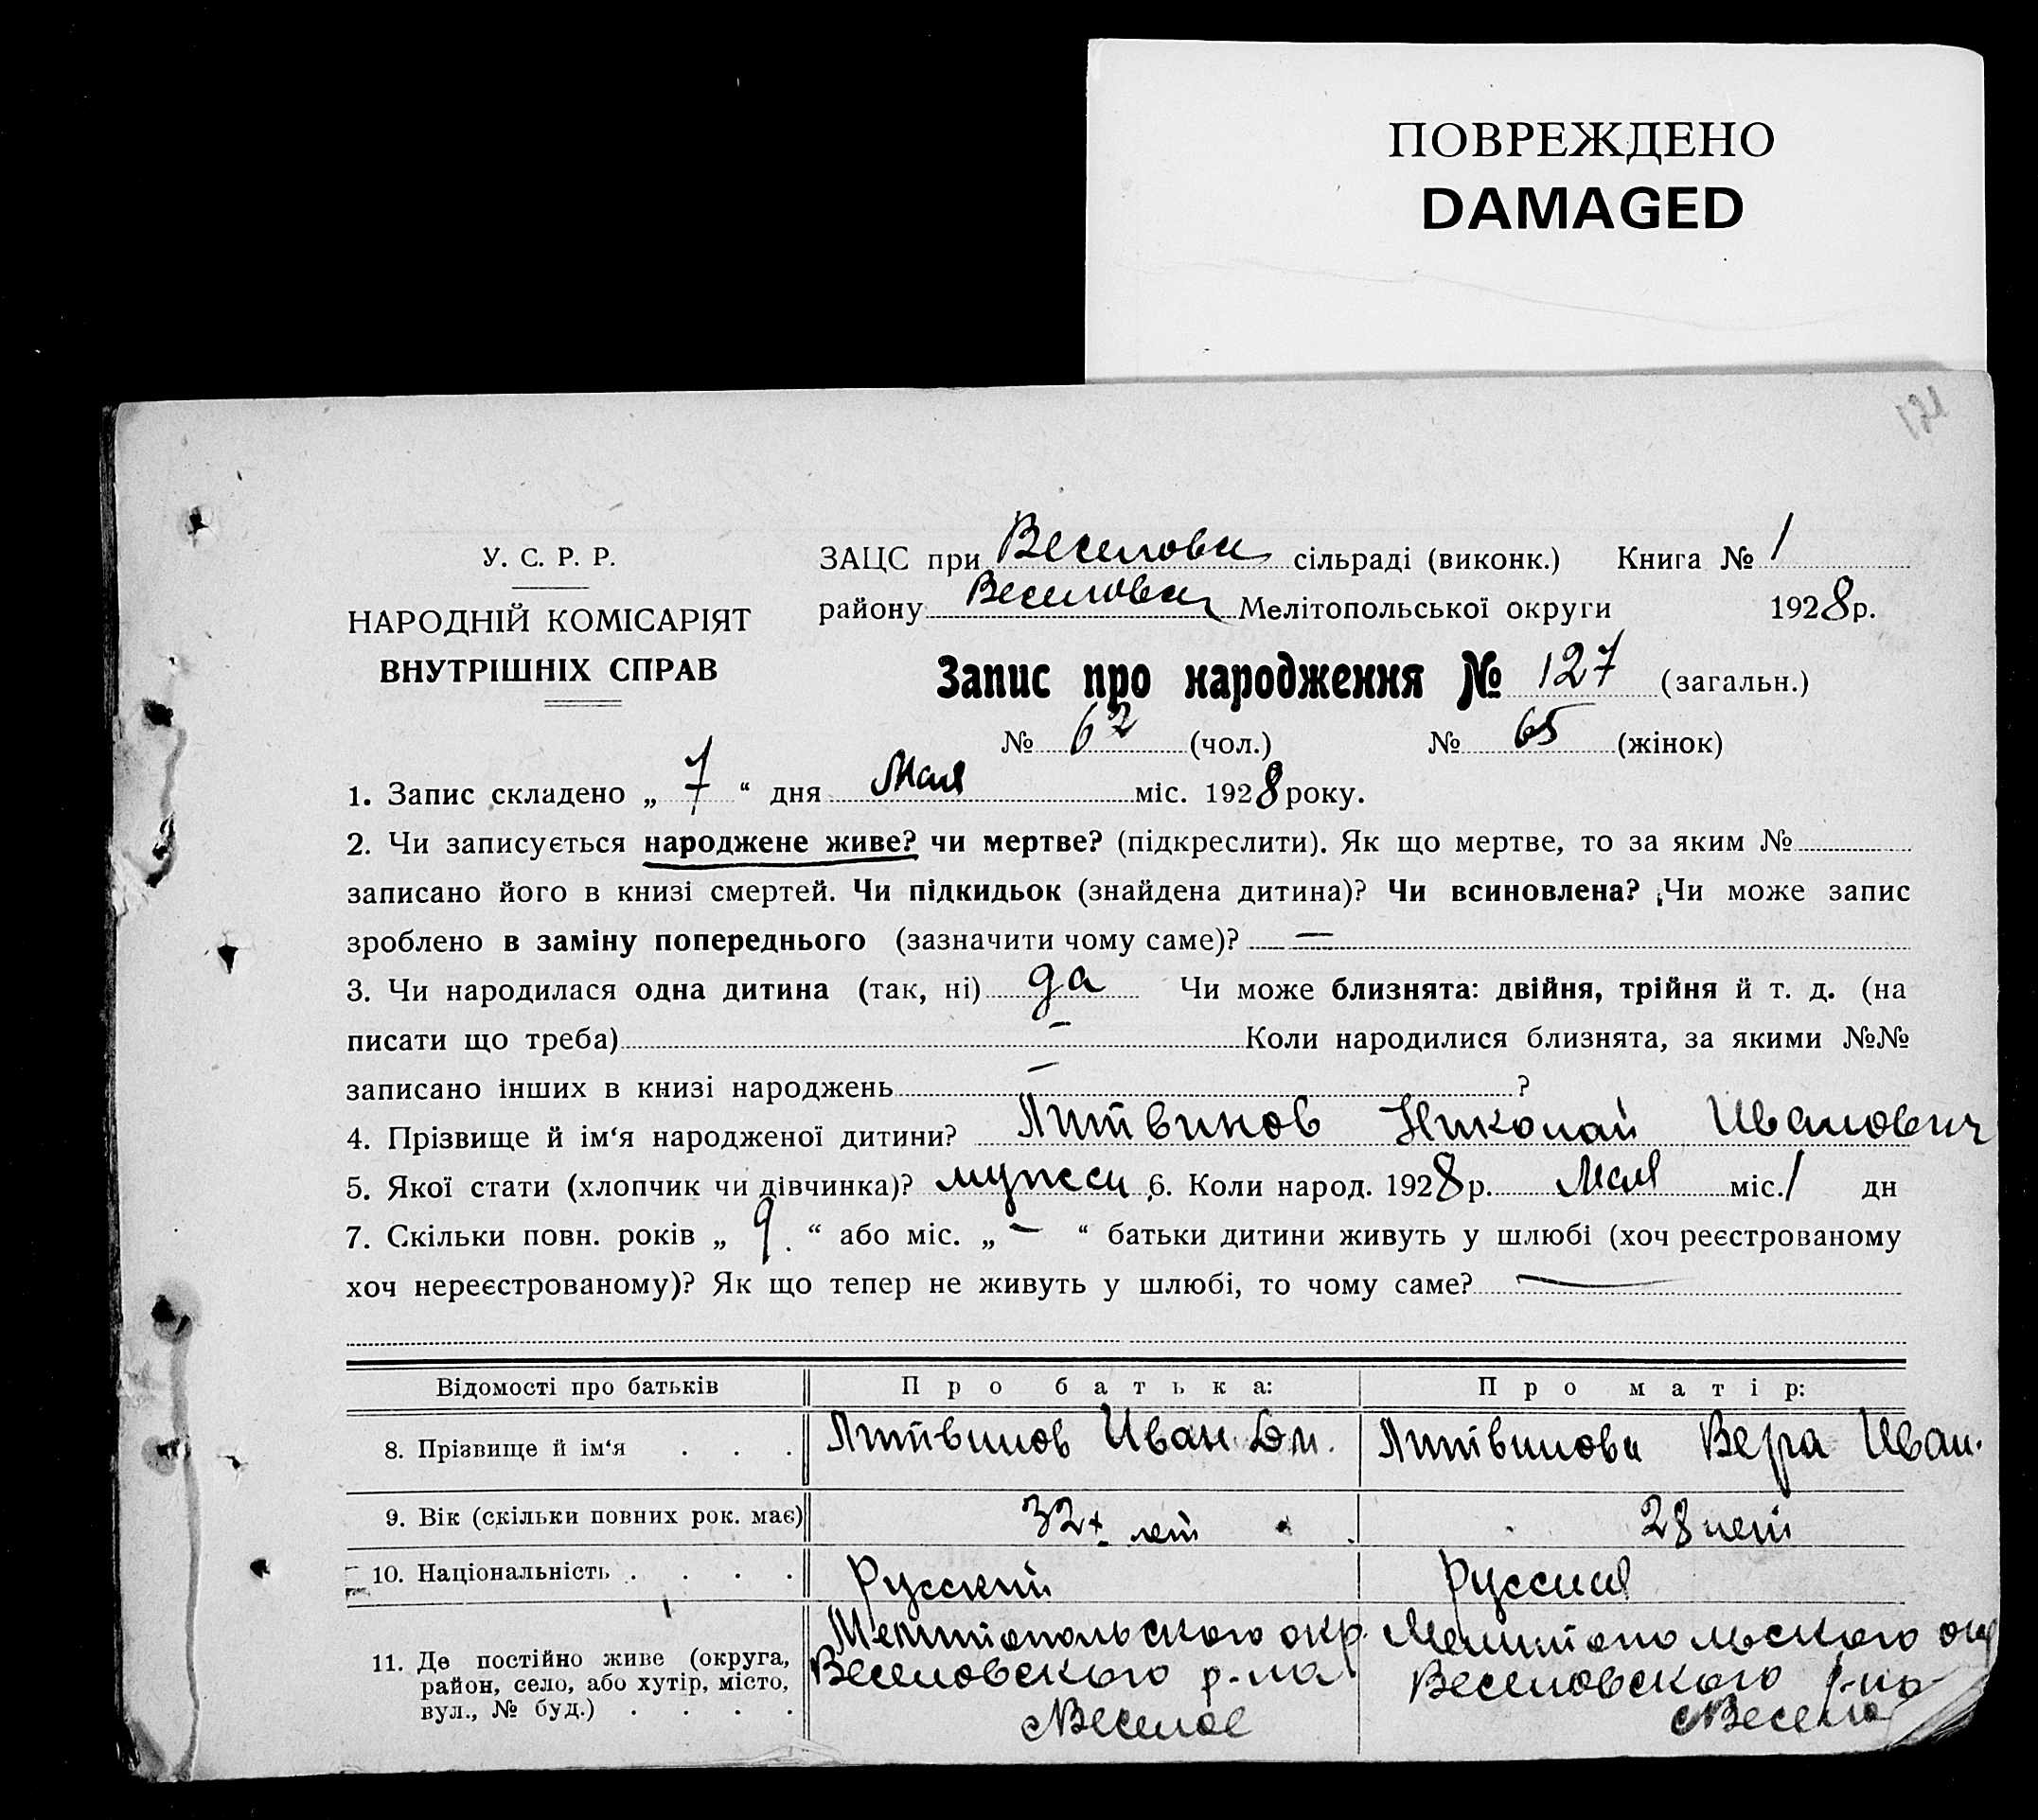 ПОВРЕЖДЕНО
DAMAGED
У. С. Р. Р.
НАРОДНІЙ КОМІСАРІЯТ
ВНУТРІШНІХ СПРАВ
ЗАЦС при Веселовск сільраді (виконк.) Книга № 1
району Веселовск Мелітопольської округи 1928 р.
Запис про народження № 127 (загальн.)
№ 62 (чол.) № 65 (жінок)
1. Запис складено „ 7 “ дня Мая міс. 1928 року.
2. Чи записується народжене живе? чи мертве? (підкреслити). Як що мертве, то за яким №
записано його в книзі смертей. Чи підкидьок (знайдена дитина)? Чи всиновлена? Чи може запис
зроблено в заміну попереднього (зазначити чому саме)? —
3. Чи народилася одна дитина (так, ні) да Чи може близнята: двійня, трійня й т. д. (на
писати що треба) — Коли народилися близнята, за якими №№
записано інших в книзі народжень — ?
4. Прізвище й ім‘я народженої дитини? Литвинов Николай Иванович
5. Якої стати (хлопчик чи дівчинка)? мужск 6. Коли народ. 1928 р. Мая міс. 1 дн
7. Скільки повн. років „ 9 “ або міс. „ — “ батьки дитини живуть у шлюбі (хоч реєстрованому
хоч нереєстрованому)? Як що тепер не живуть у шлюбі, то чому саме? —
Відомості про батьків Про батька: Про матір:
8. Прізвище й ім‘я . . . Литвинов Иван Дм. Литвинова Вера Иван.
9. Вік (скільки повних рок. має) 32х лет 28 лет
10. Національність . . . . Русский Русская
11. Де постійно живе (округа, район, село, або хутір, місто, вул., № буд.) . . . .
Мелитопольского окр. Веселовского р-на с Веселое
Мелитопольского окр Веселовского р-на с Веселое